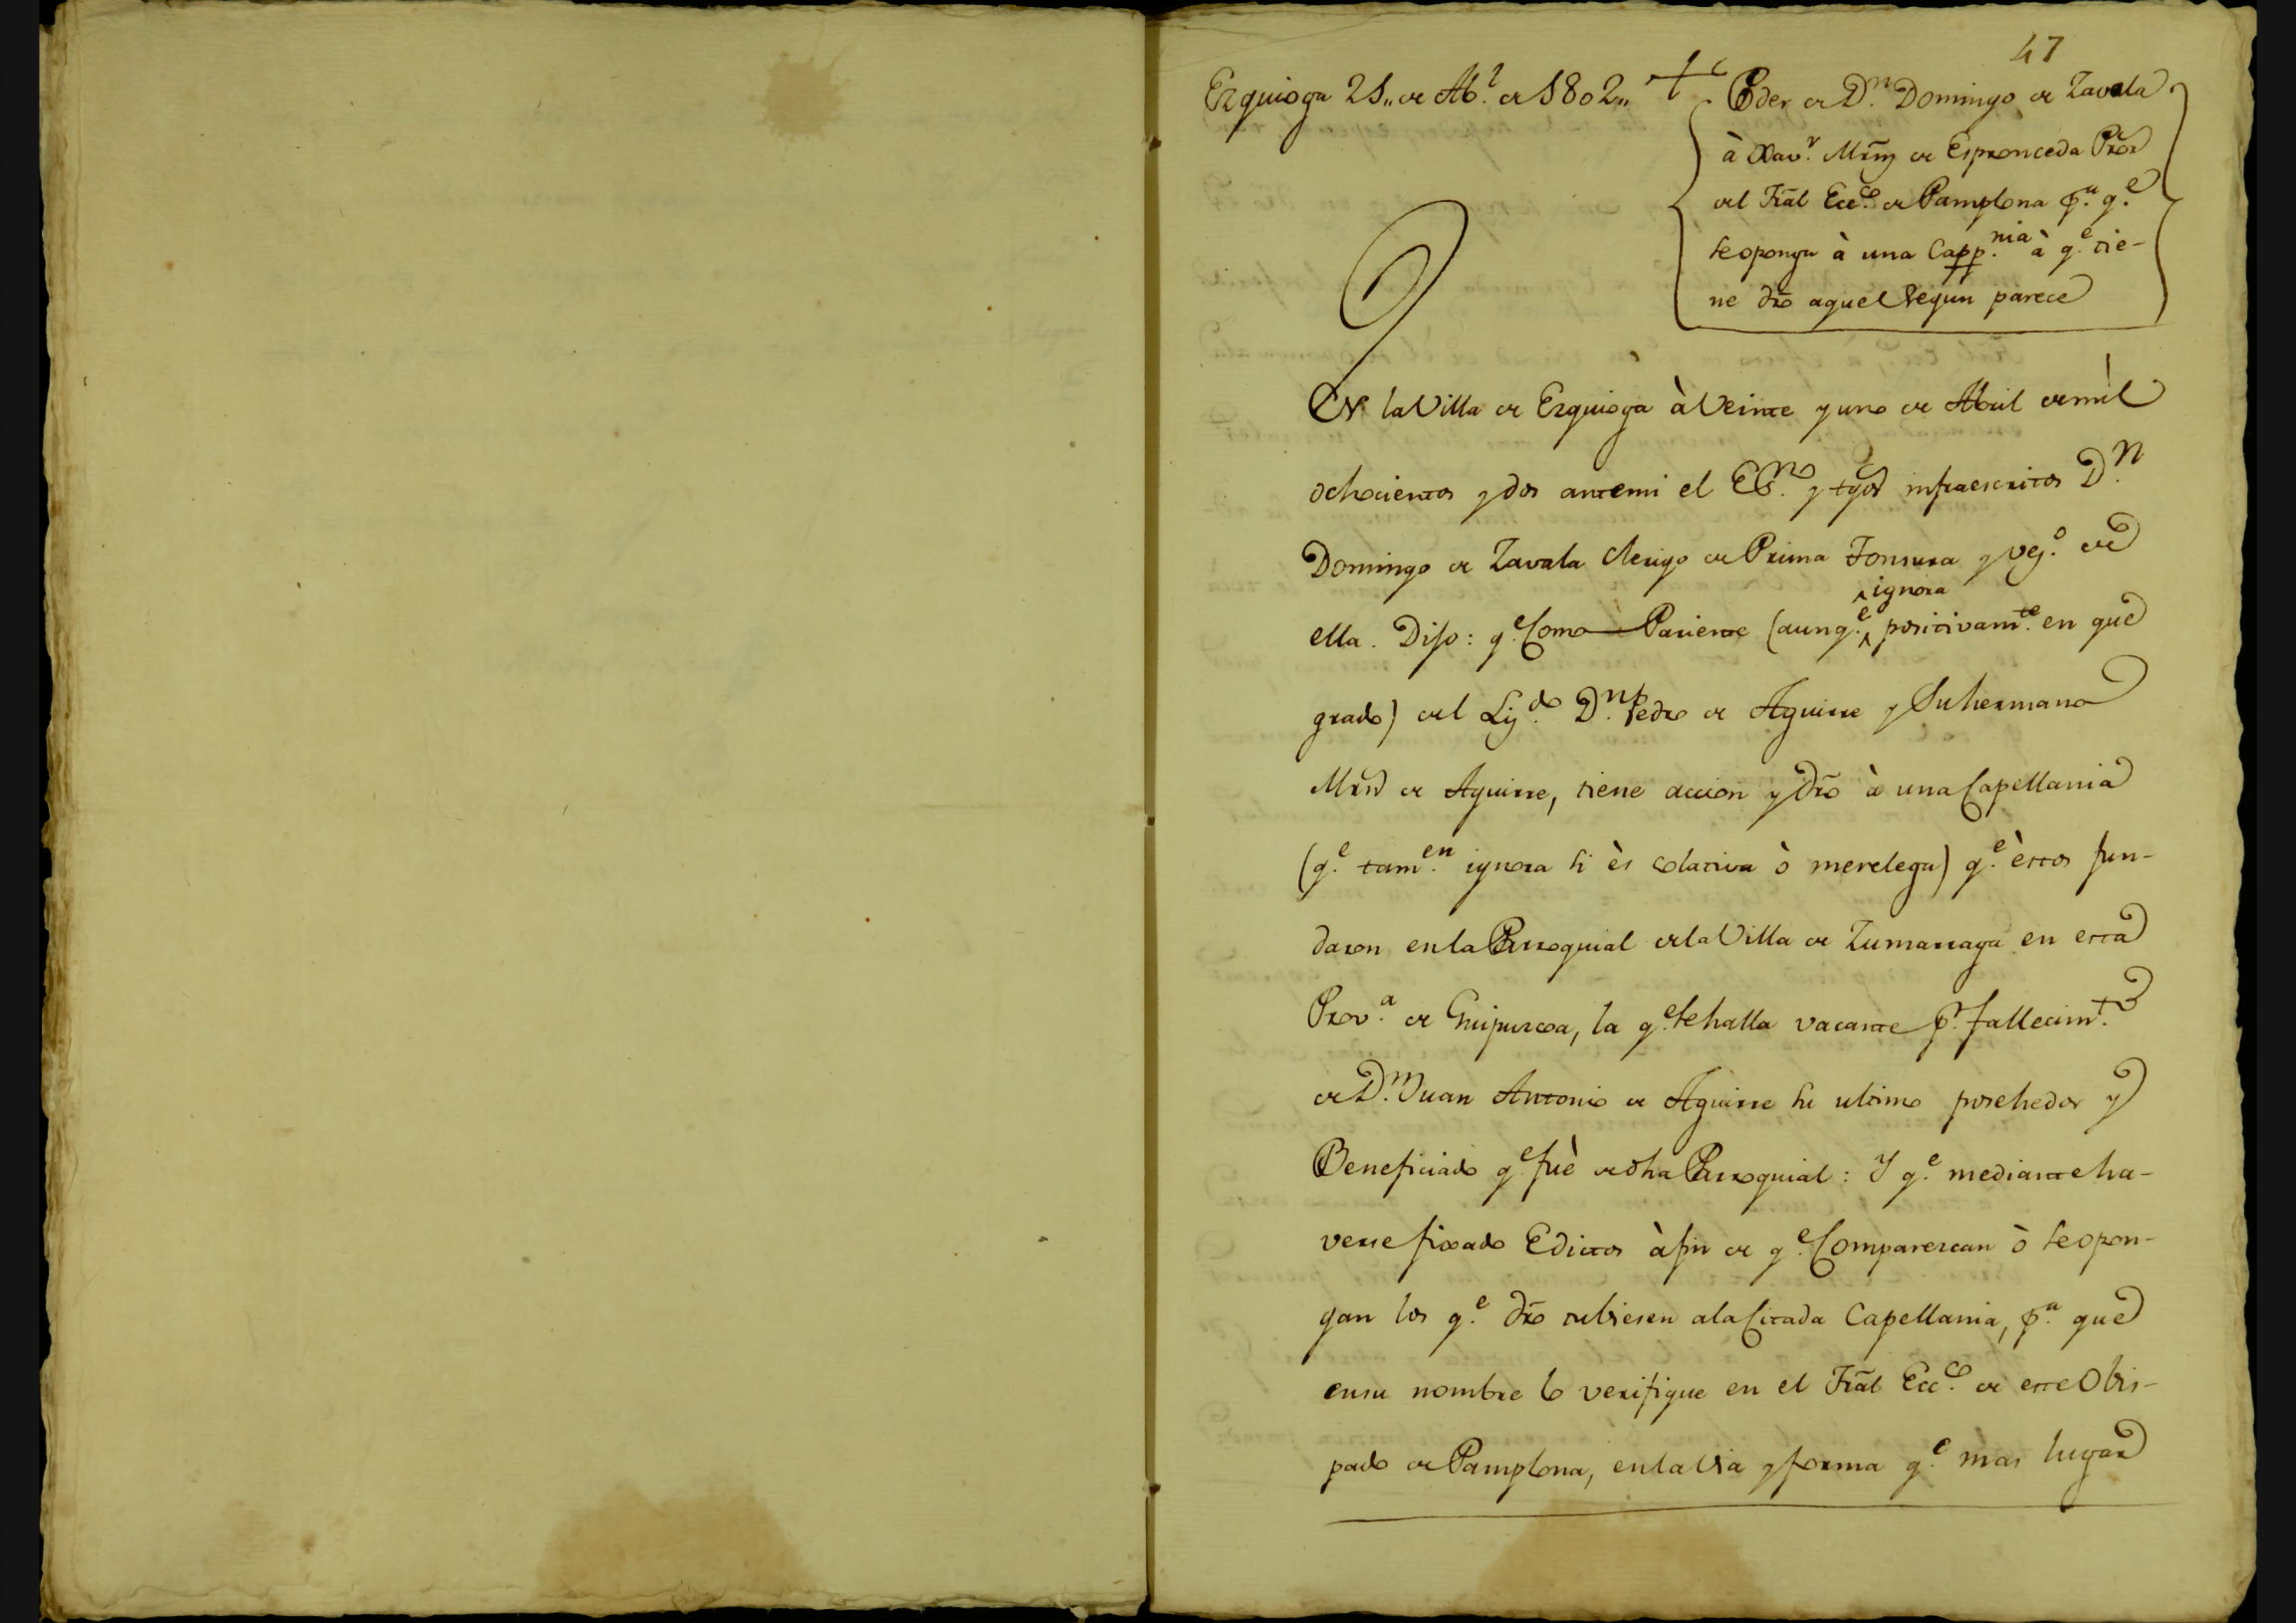 47
Ezquioga 21,, de Ab.l de 1802,, +
Poder de D.n Domingo de Zavala
à Xav.r Mrñ de Espronceda Pror
del Trãl Ecc.co de Pamplona p.a q.e
se oponga à una Capp.nia à q.e tie-
ne dr̃o aquel segun parece
En la Villa de Ezquioga à Veinte y uno de Abril de mìl
ochocientos y dos antemi el Es.no y tgos infraescritos D.n
Domingo de Zavala Clerigo de Prima Tonsura y vez.o de
ella. Dijo: q.e Como Pariente (aunq.e ^ignora positivam.te en que
grado) del Liz.do D.n Pedro de Aguirre y Su hermano
Mrñ de Aguirre, tiene accion y dr̃o à una Capellania
(q.e tam.en ignora si ès colativa ò merelega) q.e èstos fun-
daron en la Parroquial de la Villa de Zumarraga en esta
Prov.a de Guipuzcoa, la q.e se halla vacante p.r fallecim.to
de D.n Juan Antonio de Aguirre su ultimo posehedor y
Beneficiado q.e fuè de dha Parroquial: Y q.e mediante ha-
verse fixado Edictos à fin de q.e Comparezcan ò se opon-
gan los q.e dr̃o tubiesen a la Citada Capellania, p.a que
en su nombre lo verifique en el Trãl Ecc.co de este Obis-
pado de Pamplona, en la via y forma q.e mas lugar